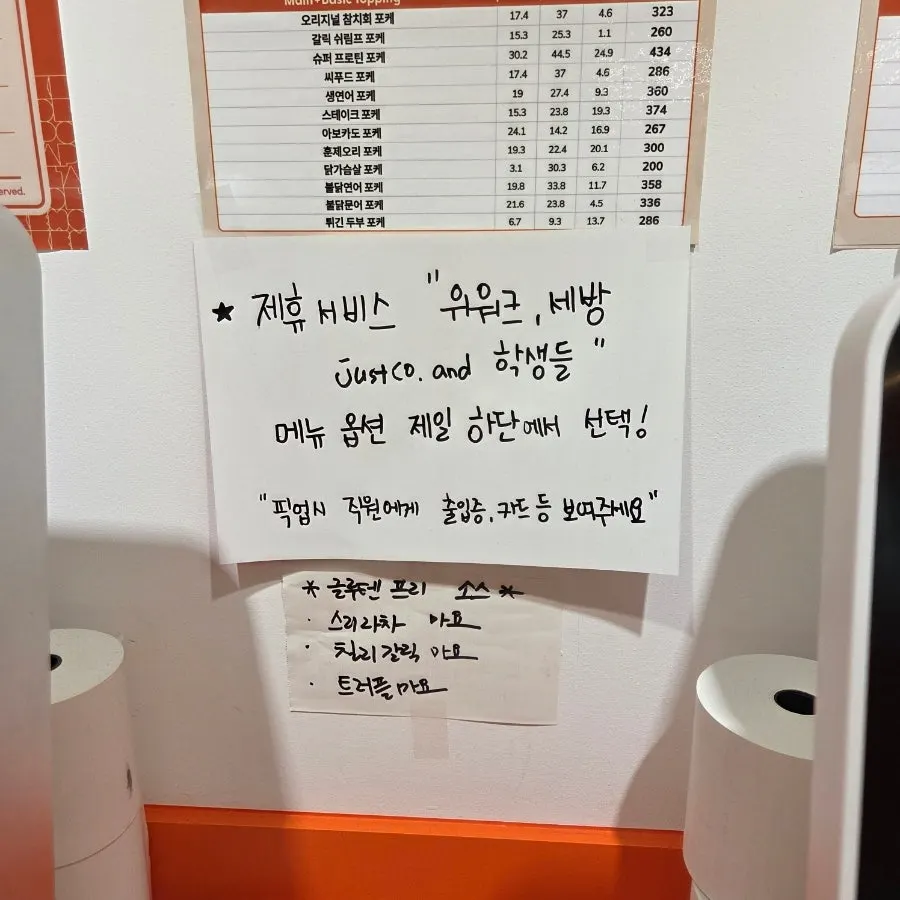 Main+Basic Topping
오리지널 참치회 포케 17.4 37 4.6 323
갈릭 쉬림프 포케 15.3 25.3 1.1 260
슈퍼 프로틴 포케 30.2 44.5 24.9 434
씨푸드 포케 17.4 37 4.6 286
생연어 포케 19 27.4 9.3 360
스테이크 포케 15.3 23.8 19.3 374
아보카도 포케 24.1 14.2 16.9 267
훈제오리 포케 19.3 22.4 20.1 300
닭가슴살 포케 3.1 30.3 6.2 200
불닭연어 포케 19.8 33.8 11.7 358
불닭문어 포케 21.6 23.8 4.5 336
튀긴 두부 포케 6.7 9.3 13.7 286
erved.
★ 제휴 서비스 "위워크, 세방
justco. and 학생들"
메뉴 옵션 제일 하단에서 선택!
"픽업시 직원에게 출입증, 카드 등 보여주세요"
* 글루텐 프리 소스 *
· 스리라차 마요
· 칠리 갈릭 마요
· 트러플 마요